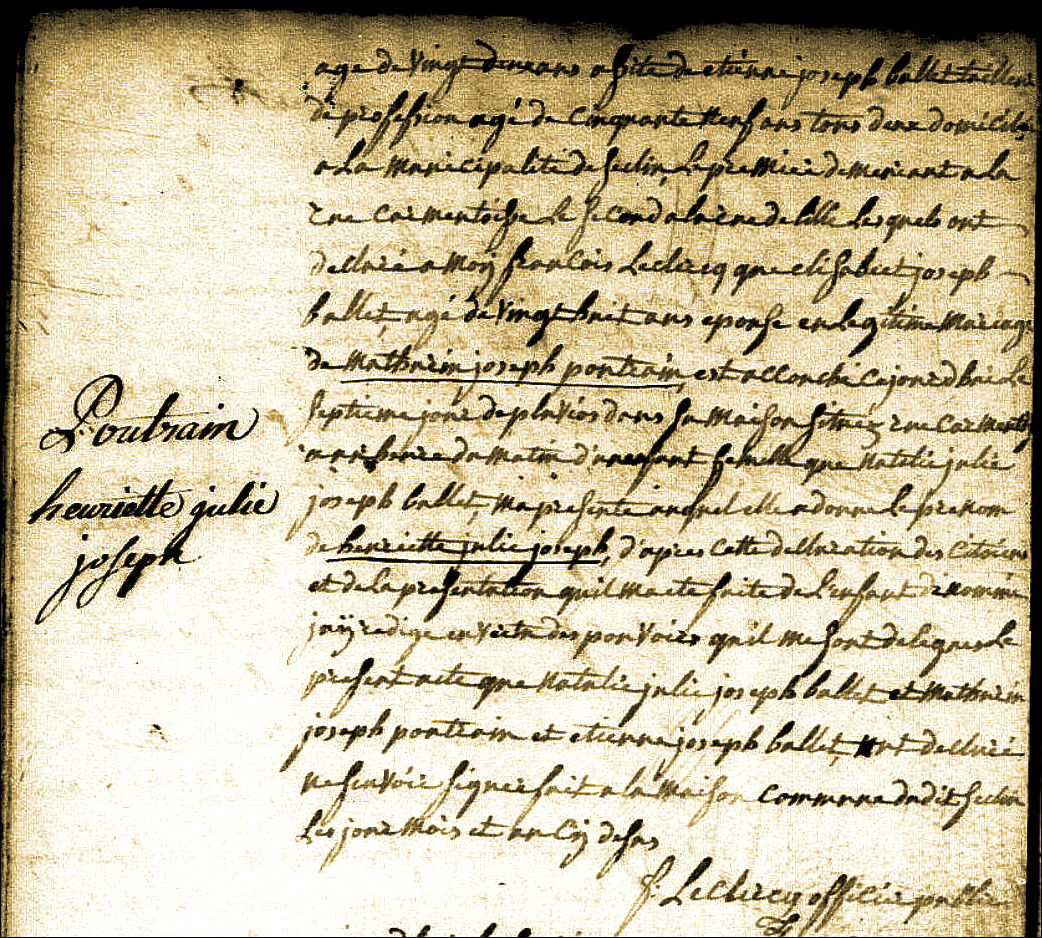 age de vingt deux ans assité de etienne joseph ballet tailleur
de profession agé de cinquante neuf ans tous deux domiciliés
a la municipalité de seclin, le premier demeurant a la
rue carmentoisse le second a la rue de lille lesquels ont
declaré a moy françois Leclercq que elisabeet joseph
ballet, agé de vingt huit ans epouse en legitime mariage
de mathurin joseph poutrain, est accouché ce jourd'hui le
septieme jour de pluvios dans sa maison situez rue carmentoi
a heure du matin d'un enfant femelle que natalie julie
joseph ballet, m'a presenté auquel elle a donné le prenom
de henriette julie joseph, d'apres cette declaration des citoiens
et de la presentation qu'il m'a eté faite de l'enfant denommé
Poutrain
henriette julie
joseph
j'aÿ redigé en vertu des pouvoirs qu'il me sont delegues le
present acte que natalie julie joseph ballet et mathurin
joseph poutrain et etienne joseph ballet, ont declaré
ne scavoir signer fait a la maison commune dudit seclin
les jour mois et an cÿ desus
f. Leclercq officier public